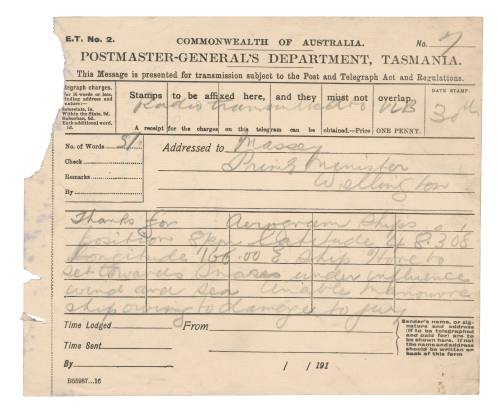 E.T. No. 2.
COMMONWEALTH OF AUSTRALIA.
No. 7
POSTMASTER-GENERAL'S DEPARTMENT, TASMANIA.
This Message is presented for transmission subject to the Post and Telegraph Act and Regulations.
Telegraph charges.
For 16 words or less,
including address and
signature:—
Suburbs, 6d.
Each additional word,
1d.
Stamps to be affixed here, and they must not overlap.
Radio transmitted
A receipt for the charges on this telegram can be obtained.—Price ONE PENNY.
DATE STAMP.
30th
No. of Words 51
Check
Remarks
By
Addressed to Massey
Prime Minister
Wellington
Thanks for Aerogram ships
position 8pm Latitude 48.30S
Longitude 166.00 E ship hove to
set towards Snares under influence
wind and sea unable manouvre
ship owing to damage to jury
Time Lodged
From
Time Sent
By
/ /191
Sender's name, or sig-
nature and address
(if to be telegraphed
and paid for) are to
be shown here. If not
the name and address
should be written on
back of this form
B55987.—16